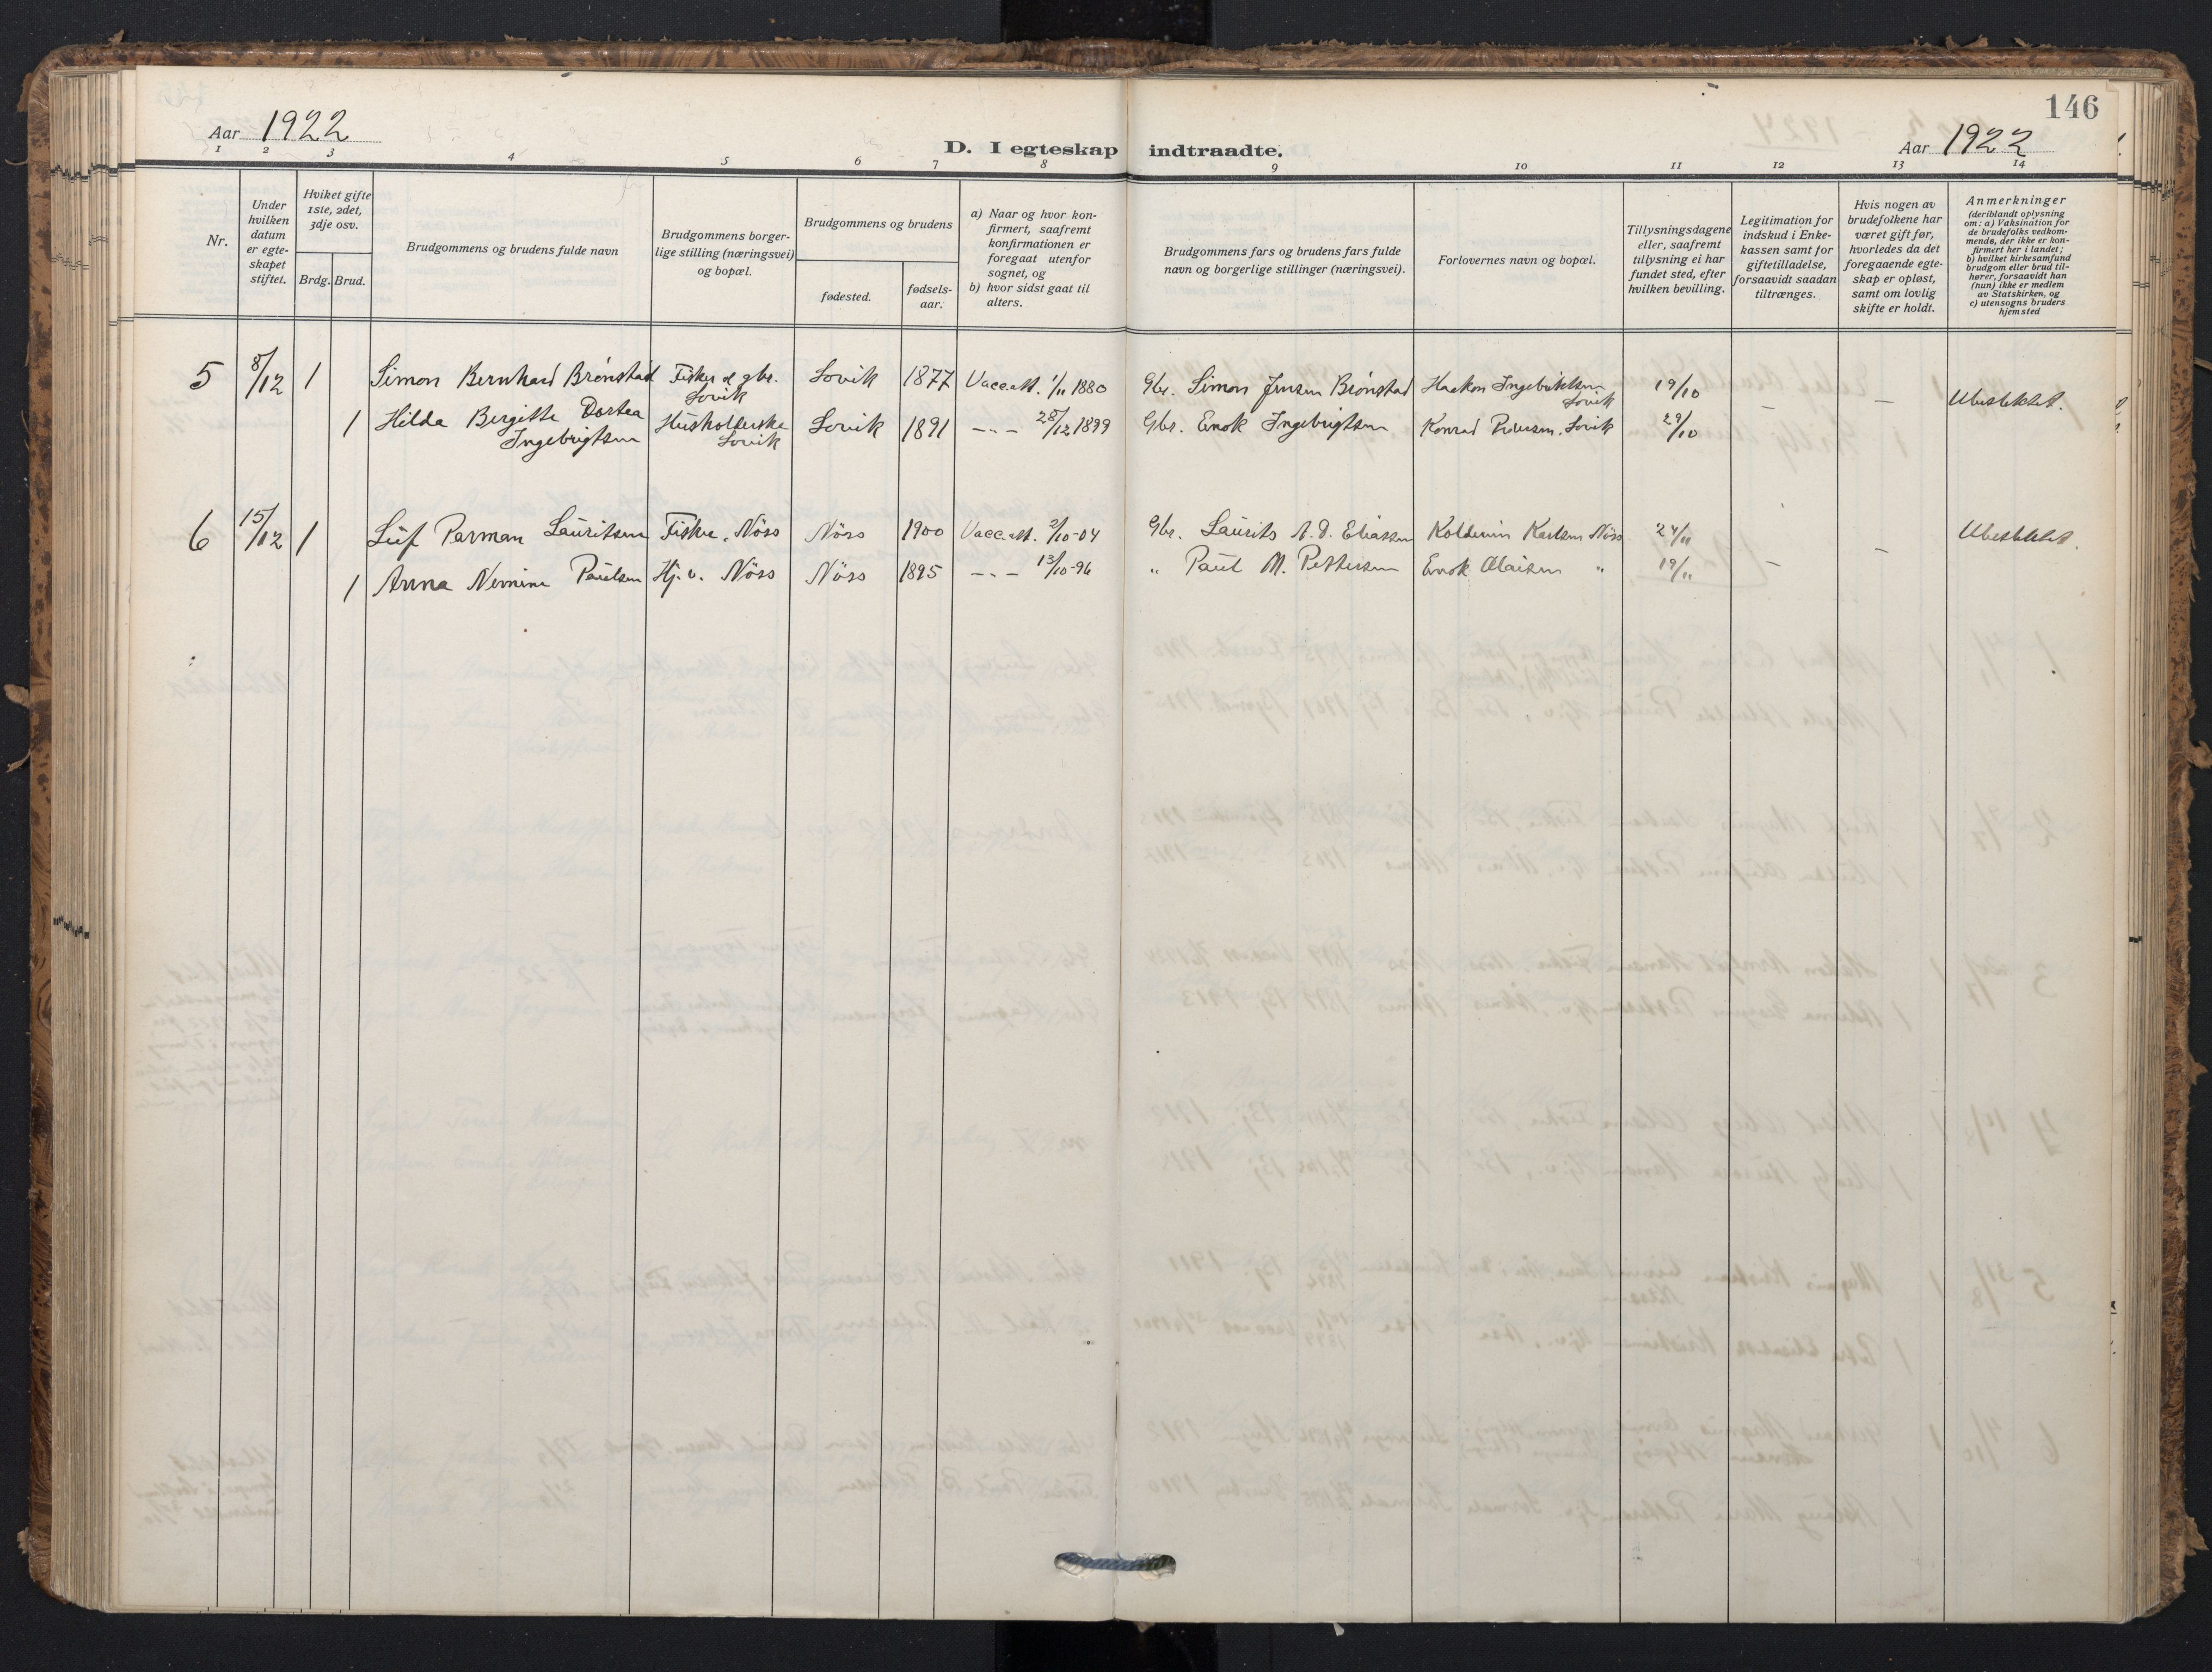 146
Aar 1922
D. I egteskap indtraadte.
Aar 1922
1 2 3 4 5 6 7 8 9 10 11 12 13 14
Nr.
Under hvilken datum er egteskapet stiftet.
Hviket gifte 1ste, 2det, 3dje osv.
Brdg. Brud.
Brudgommens og brudens fulde navn
Brudgommens borgerlige stilling (næringsvei) og bopæl.
Brudgommens og brudens
fødested.
fødselsaar.
a) Naar og hvor konfirmert, saafremt konfirmationen er foregaat utenfor sognet, og
b) hvor sidst gaat til alters.
Brudgommens fars og brudens fars fulde navn og borgerlige stillinger (næringsvei).
Forlovernes navn og bopæl.
Tillysningsdagene eller, saafremt tillysning ei har fundet sted, efter hvilken bevilling.
Legitimation for indskud i Enkekassen samt for giftetilladelse, forsaavidt saadan tiltrænges.
Hvis nogen av brudefolkene har været gift før, hvorledes da det foregaaende egteskap er opløst, samt om lovlig skifte er holdt.
Anmerkninger
(deriblandt oplysning om: a) Vaksination for de brudefolks vedkommende, der ikke er konfirmert her i landet;
b) hvilket kirkesamfund brudgom eller brud tilhører, forsaavidt han (hun) ikke er medlem av Statskirken, og
c) utensogns bruders hjemsted
5 8/12 1 Simon Bernhard Brønstad Fisker & gbr. Lovik Lovik 1877 Vacc.att. 1/11 1880 Gbr. Simon Jensen Brønstad Haakon Ingebriktsen Lovik 19/10 Ubeslektet.
1 Hilda Bergitte Dortea Ingebrigtsen Husholderske Lovik Lovik 1891 -"- 28/12 1899 Gbr. Enok Ingebrigtsen Konrad Lovik 29/10 - -
6 15/12 1 Leif Parman Lauritsen Fisker, Nöss Nöss 1900 Vacc.att. 2/10-04 Gbr. Laurits A. D. Eliassen Karlsen Nöss 24/11 Ubeslektet.
1 Anna Nemine Paulsen Hj.v. Nöss Nöss 1895 -"- 13/10-96 " Paul M. Pettersen Enok Olaisen " 19/11 - -